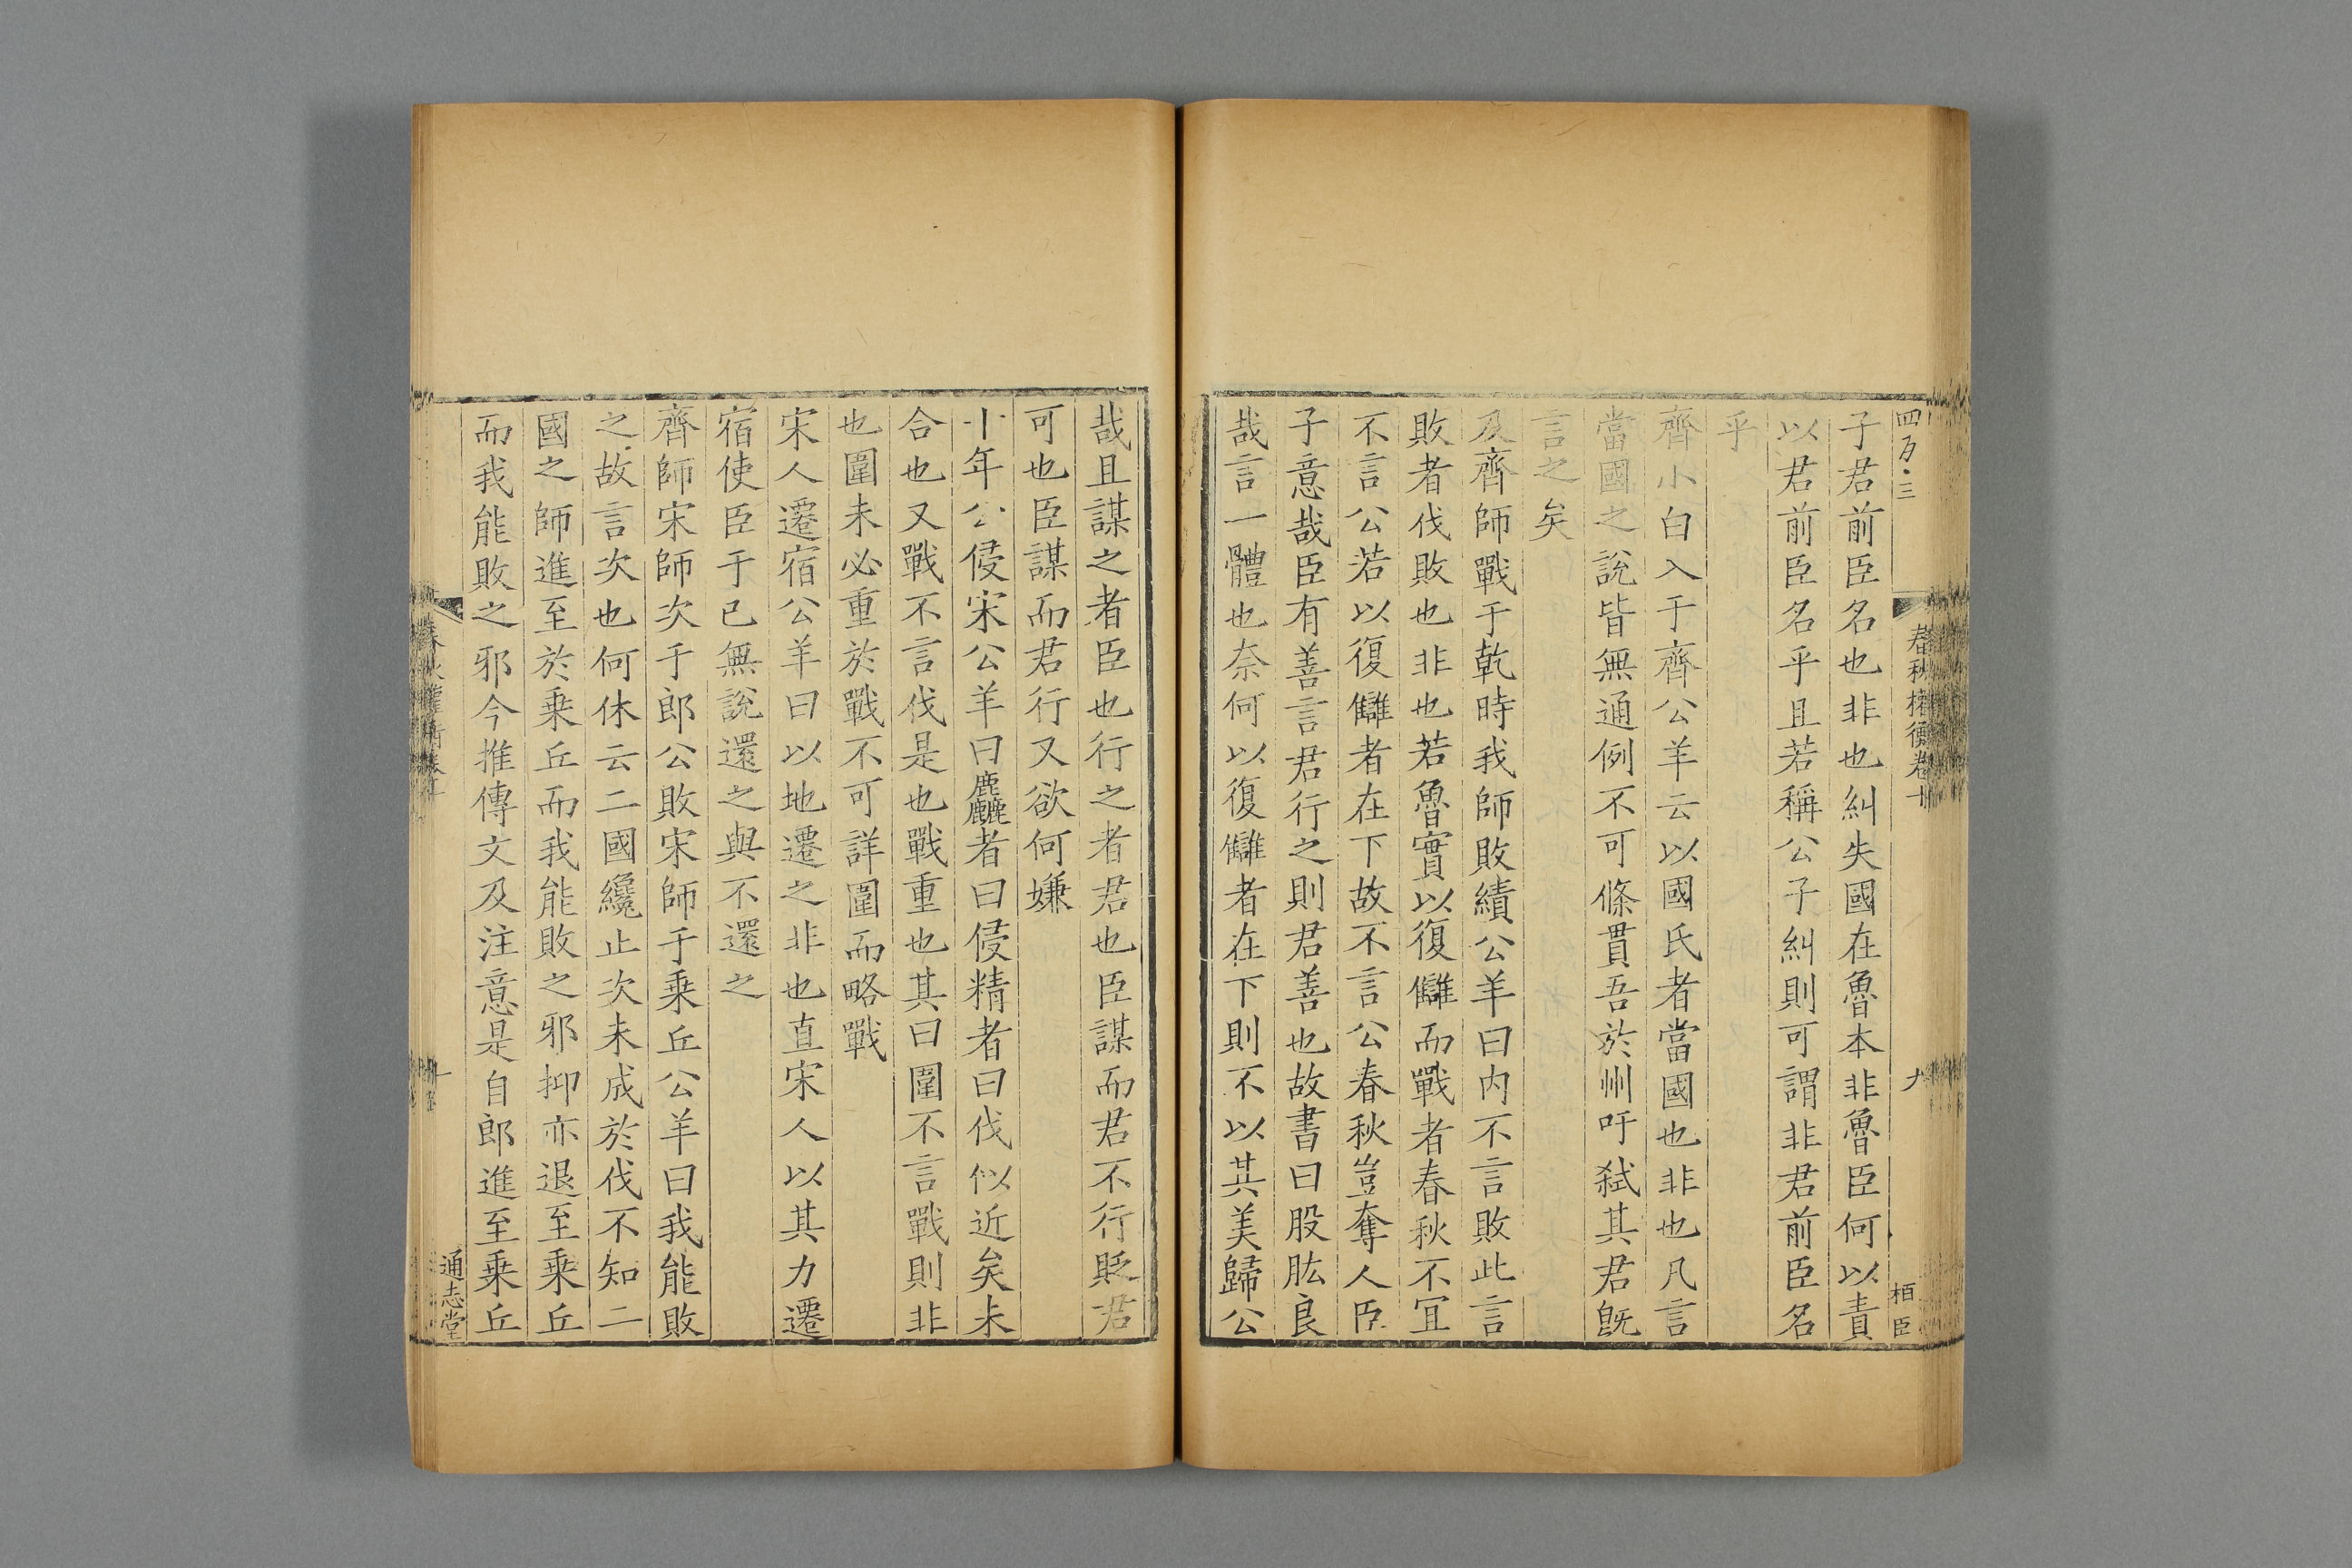 四百·三
春秋權衡卷十
九
栢臣
子君前臣名也非也糾失國在魯本非魯臣何以責
以君前臣名乎且若稱公子糾則可謂非君前臣名
乎
齊小白入于齊公羊云以國氏者當國也非也凡言
當國之說皆無通例不可條貫吾於州吁弑其君旣
言之矣
及齊師戰于乾時我師敗績公羊曰内不言敗此言
敗者伐敗也非也若魯實以復讎而戰者春秋不宜
不言公若以復讎者在下故不言公春秋豈奪人臣
子意哉臣有善言君行之則君善也故書曰股肱良
哉言一體也奈何以復讎者在下則不以其美歸公
哉且謀之者臣也行之者君也臣謀而君不行貶君
可也臣謀而君行又欲何嫌
十年公侵宋公羊曰麤者曰侵精者曰伐似近矣未
合也又戰不言伐是也戰重也其曰圍不言戰則非
也圍未必重於戰不可詳圍而略戰
宋人遷宿公羊曰以地遷之非也直宋人以其力遷
宿使臣于已無說還之與不還之
齊師宋師次于郎公敗宋師于乗丘公羊曰我能敗
之故言次也何休云二國纔止次未成於伐不知二
國之師進至於乗丘而我能敗之邪抑亦退至乗丘
而我能敗之邪今推傳文及注意是自郎進至乗丘
通志堂